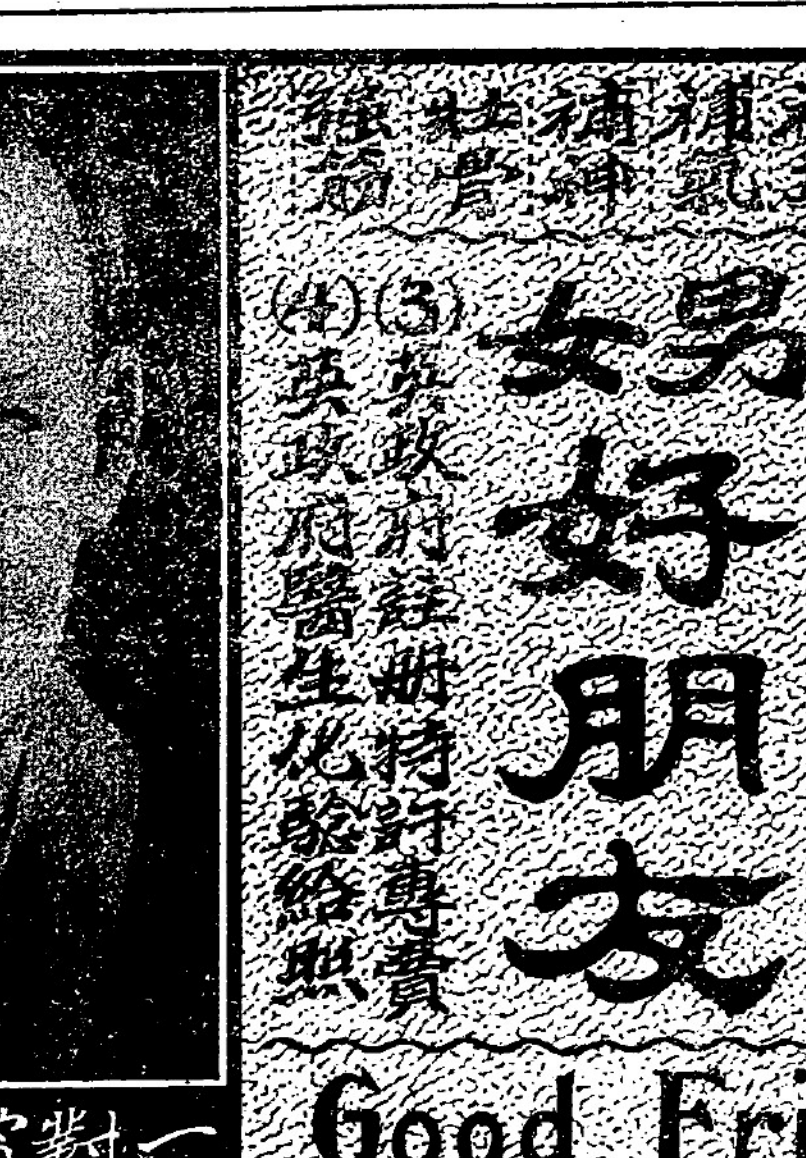 補氣
補神
壯骨
強筋
男女
好
朋
友
(3)英政府註册特許專賣
(4)英政府醫生化驗給照
Good Fri
一對